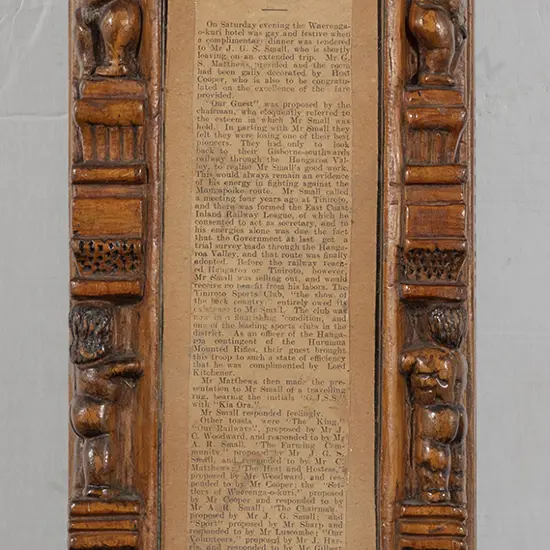 On Saturday evening the Waerenga-
o-kuri hotel was gay and festive when
a complimentary dinner was tendered
to Mr J. G. S. Small, who is shortly
leaving on an extended trip. Mr G.
S. Matthews presided and the room
had been gaily decorated by Host
Cooper, who is also to be congratu-
lated on the excellence of the fare
provided.
"Our Guest", was proposed by the
chairman, who eloquently referred to
the esteem in which Mr Small was
held. In parting with Mr Small they
felt they were losing one of their best
pioneers. They had only to look
back to their Gisborne-southwards
railway through the Hangaroa Val-
ley, to realise Mr Small's good work.
This would always remain an evidence
of his energy in fighting against the
Maungapoike route. Mr Small called
a meeting four years ago at Tiniroto,
and there was formed the East Coast
Inland Railway League, of which he
consented to act as secretary, and to
his energies alone was due the fact
that the Government at last got a
trial survey made through the Hanga-
roa Valley, and that route was finally
adopted. Before the railway reach-
ed Hangaroa or Tiniroto, however,
Mr Small was selling out, and would
receive no benefit from his labors. The
Tiniroto Sports Club, "the show of
the back country," entirely owed its
existence to Mr Small. The club was
now in a flourishing condition, and
one of the leading sports clubs in the
district. As an officer of the Hanga-
roa contingent of the Huramua
Mounted Rifles, their guest brought
this troop to such a state of efficiency
that he was complimented by Lord
Kitchener.
Mr Matthews then made the pre-
sentation to Mr Small of a travelling
rug, bearing the initials "G.J.S.S."
with "Kia Ora."
Mr Small responded feelingly.
Other toasts were "The King,"
"Our Railways", proposed by Mr J.
C. Woodward, and responded to by Mr
A. R. Small. "The Farming Com-
munity," proposed by J. G. S.
Small, and responded to by Mr C.
Matthews; "The Host and Hostess,"
proposed by Mr Woodward, and res-
ponded to by Mr Cooper; the "Set-
tlers of Waerenga-o-kuri," proposed
by Mr Cooper and responded to by
Mr A. R. Small; "The Chairman,"
proposed by Mr J. G. Small; and
"Sport" proposed by Mr Sharp and
responded to by Mr Luscombe; "Our
Volunteers," proposed by Mr J. Har-
ris, and responded to by Mr Gilbert